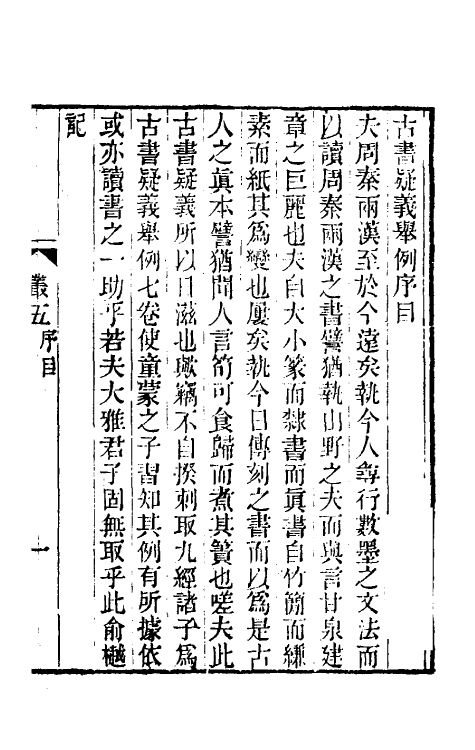 古書疑義舉例序目
夫周秦兩漢至於今遠矣執今人尋行數墨之文法而
以讀周秦兩漢之書譬猶執山野之夫而與言甘泉建
章之巨麗也夫自大小篆而隸書而眞書自竹簡而縑
素而紙其爲變也屢矣執今日傳刻之書而以爲是古
人之眞本譬猶聞人言筍可食歸而煮其簀也嗟夫此
古書疑義所以日滋也歟竊不自揆刺取九經諸子爲
古書疑義舉例七卷使童蒙之子習知其例有所據依
或亦讀書之一助乎若夫大雅君子固無取乎此俞樾
記
叢五 序目 一